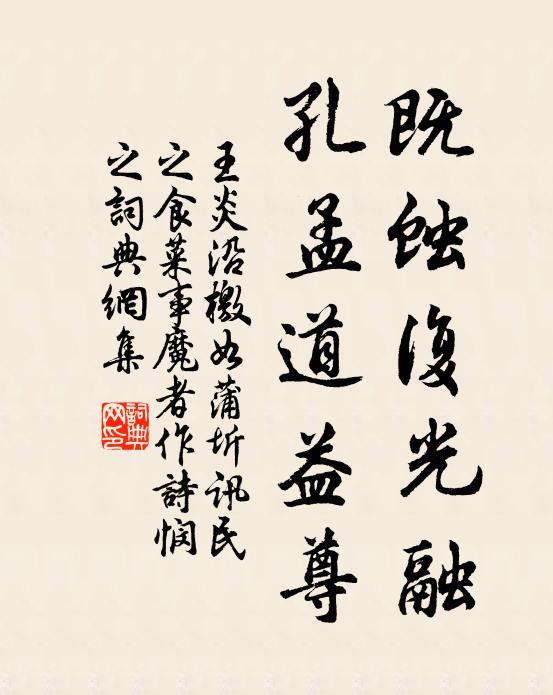 既蚀復光融
孔孟道益尊
王炎沿檄如蒲圻訊民
之食菜事魔者作詩憫
之詞典網集
詞典网印